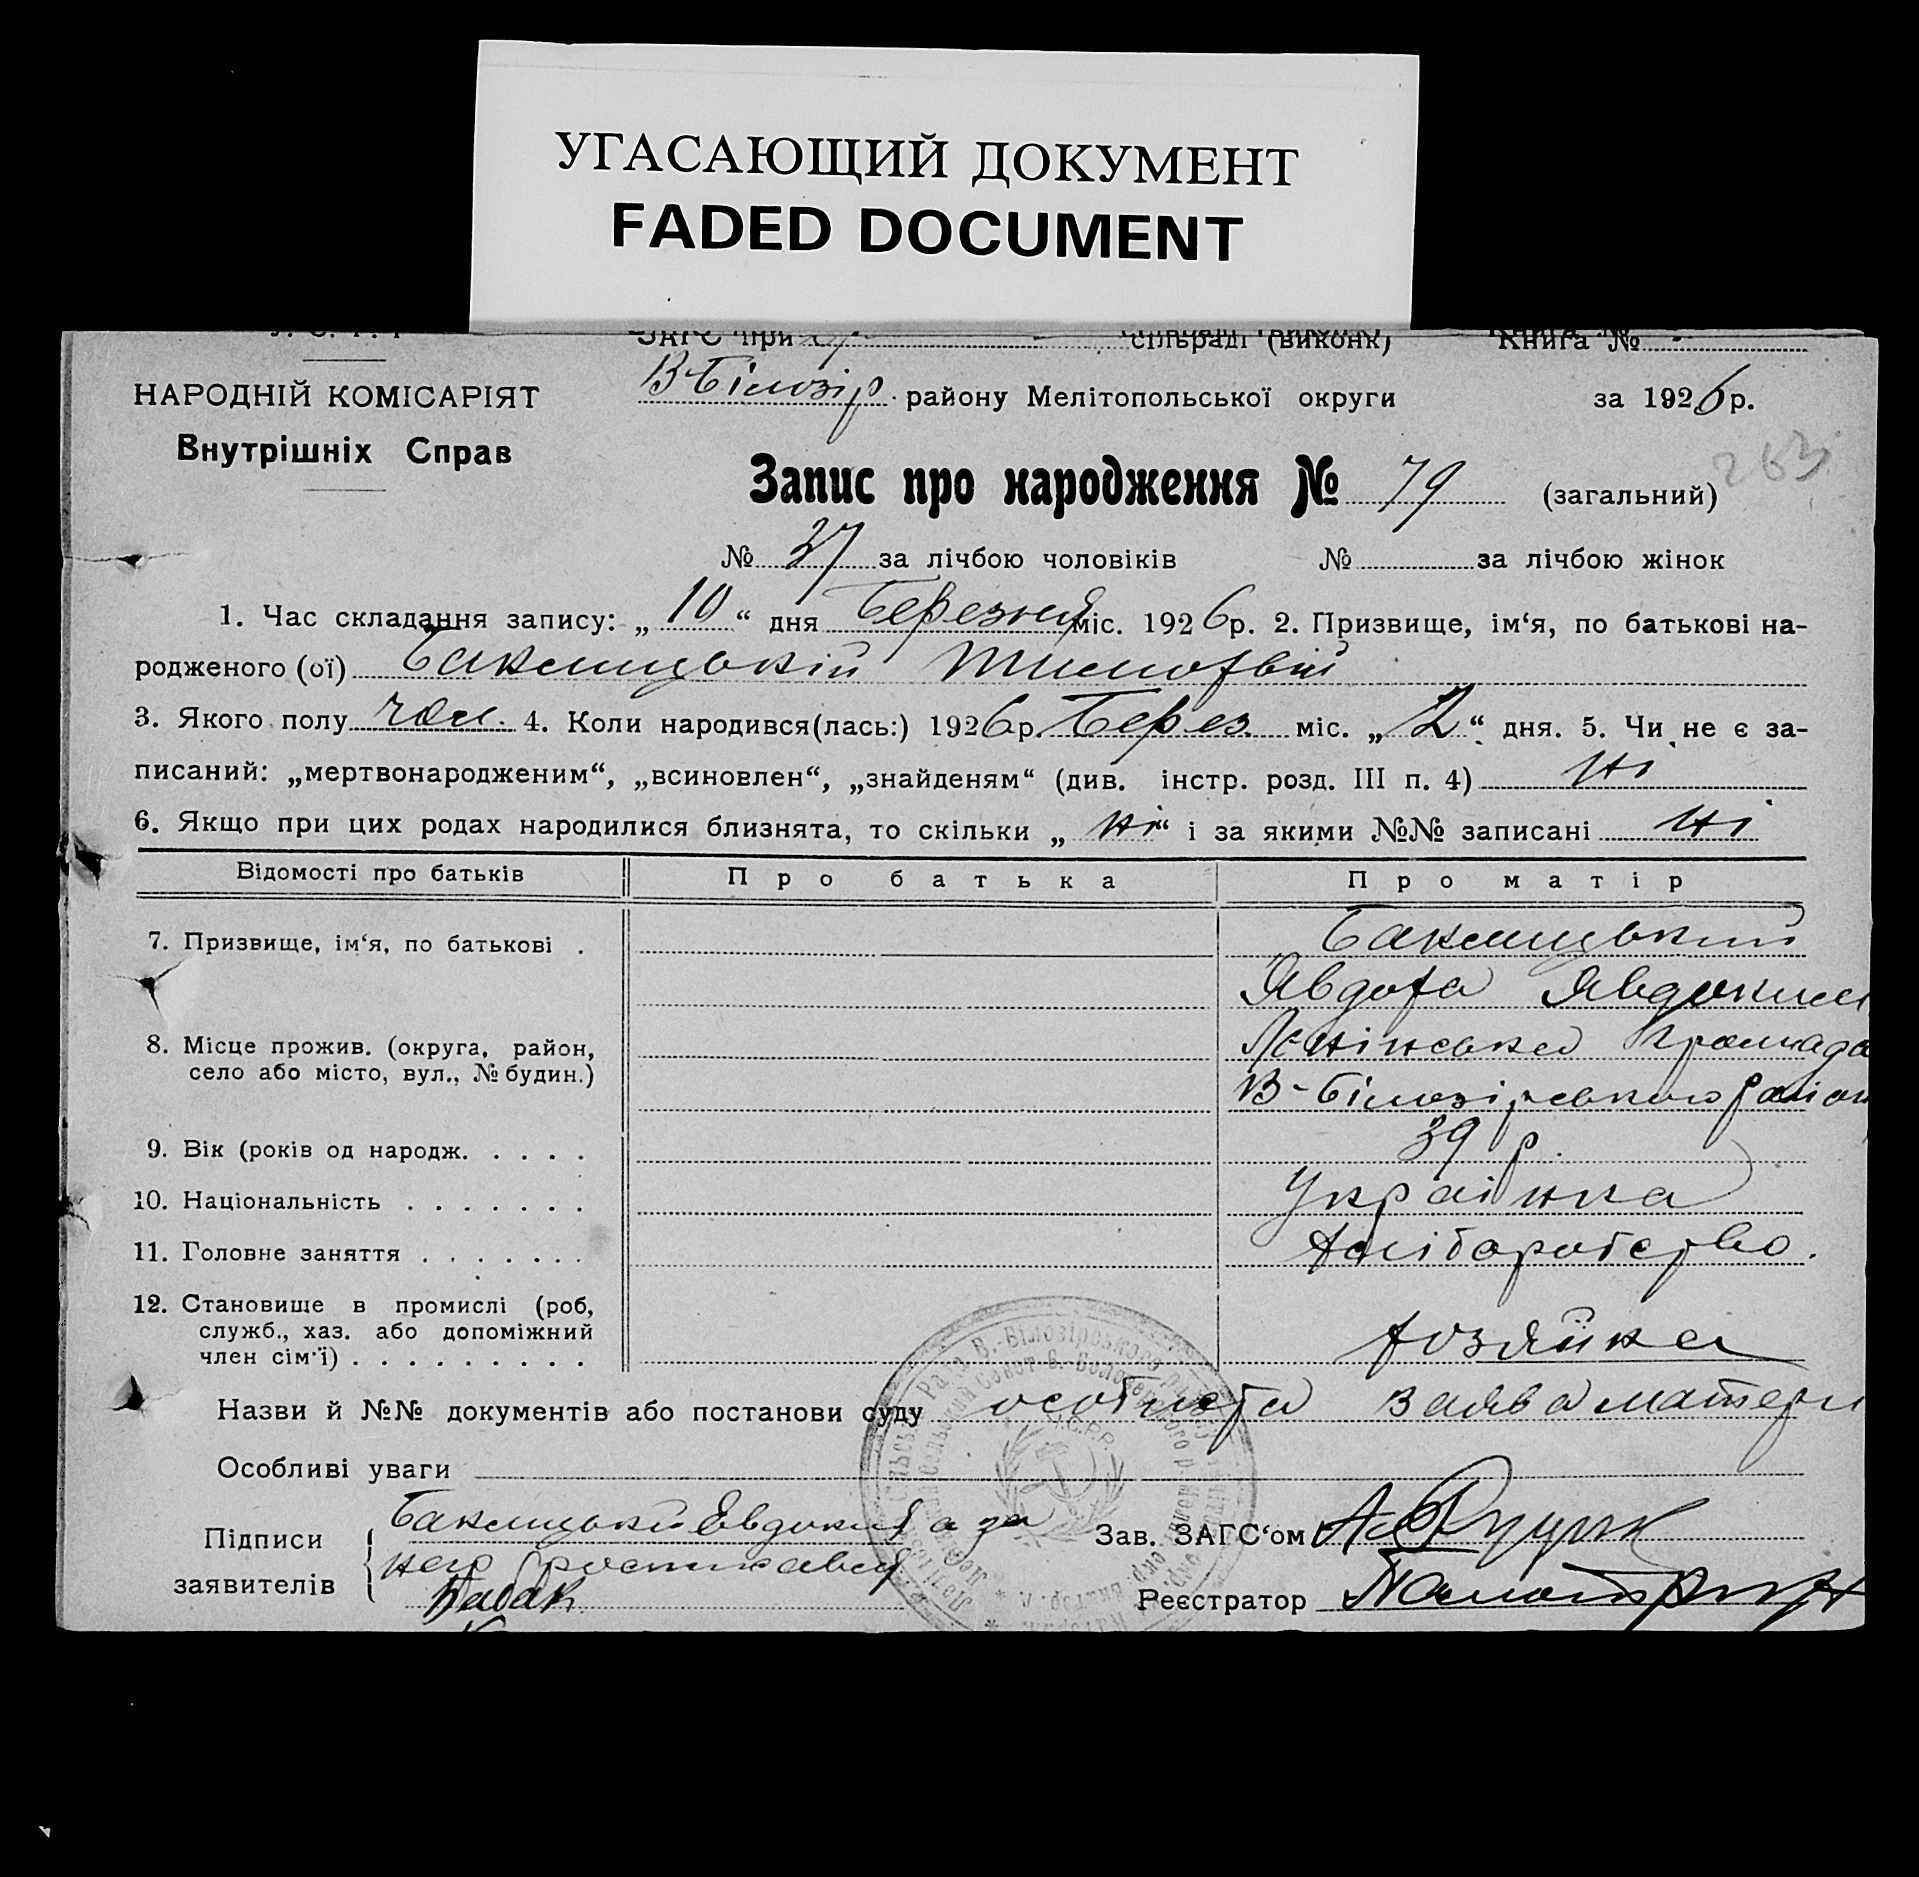 УГАСАЮЩИЙ ДОКУМЕНТ
FADED DOCUMENT
ЗАГС при сільраді (виконк) Книга №
НАРОДНІЙ КОМІСАРІЯТ
Внутрішніх Справ
В-Білозір. району Мелітопольської округи за 1926 р.
263
Запис про народження № 79 (загальний)
№ 37 за лічбою чоловіків № за лічбою жінок
1. Час складання запису: „ 10 “ дня Березня міс. 1926 р. 2. Призвище, ім‘я, по батькові на-
родженого (ої) Баклицький Тимофій
3. Якого полу чол. 4. Коли народився(лась:) 1926 р. Берез. міс. „ 2 “ дня. 5. Чи не є за-
писаний: „мертвонародженим“, „всиновлен“, „знайденям“ (див. інстр. розд. III п. 4) Ні
6. Якщо при цих родах народилися близнята, то скільки „ Ні “ і за якими №№ записані Ні
Відомості про батьків Про батька Про матір
7. Призвище, ім‘я, по батькові . Баклицький
Явдоха Явдоким
8. Місце прожив. (округа, район,
село або місто, вул., № будин.)
Ленінська Громада
В-Білозірського район
9. Вік (років од народж. . . . . 39 р.
10. Національність . . . . . . . Українка
11. Головне заняття . . . . . . . Хліборобство.
12. Становище в промислі (роб,
служб., хаз. або допоміжний
член сім‘ї) . . . . . . . . . хозяйка
Назви й №№ документів або постанови суду особиста заява матери
Особливі уваги
Підписи
заявителів
Бакицький Євдоким а за
него
Бабак
Зав. ЗАГС‘ом
Реєстратор